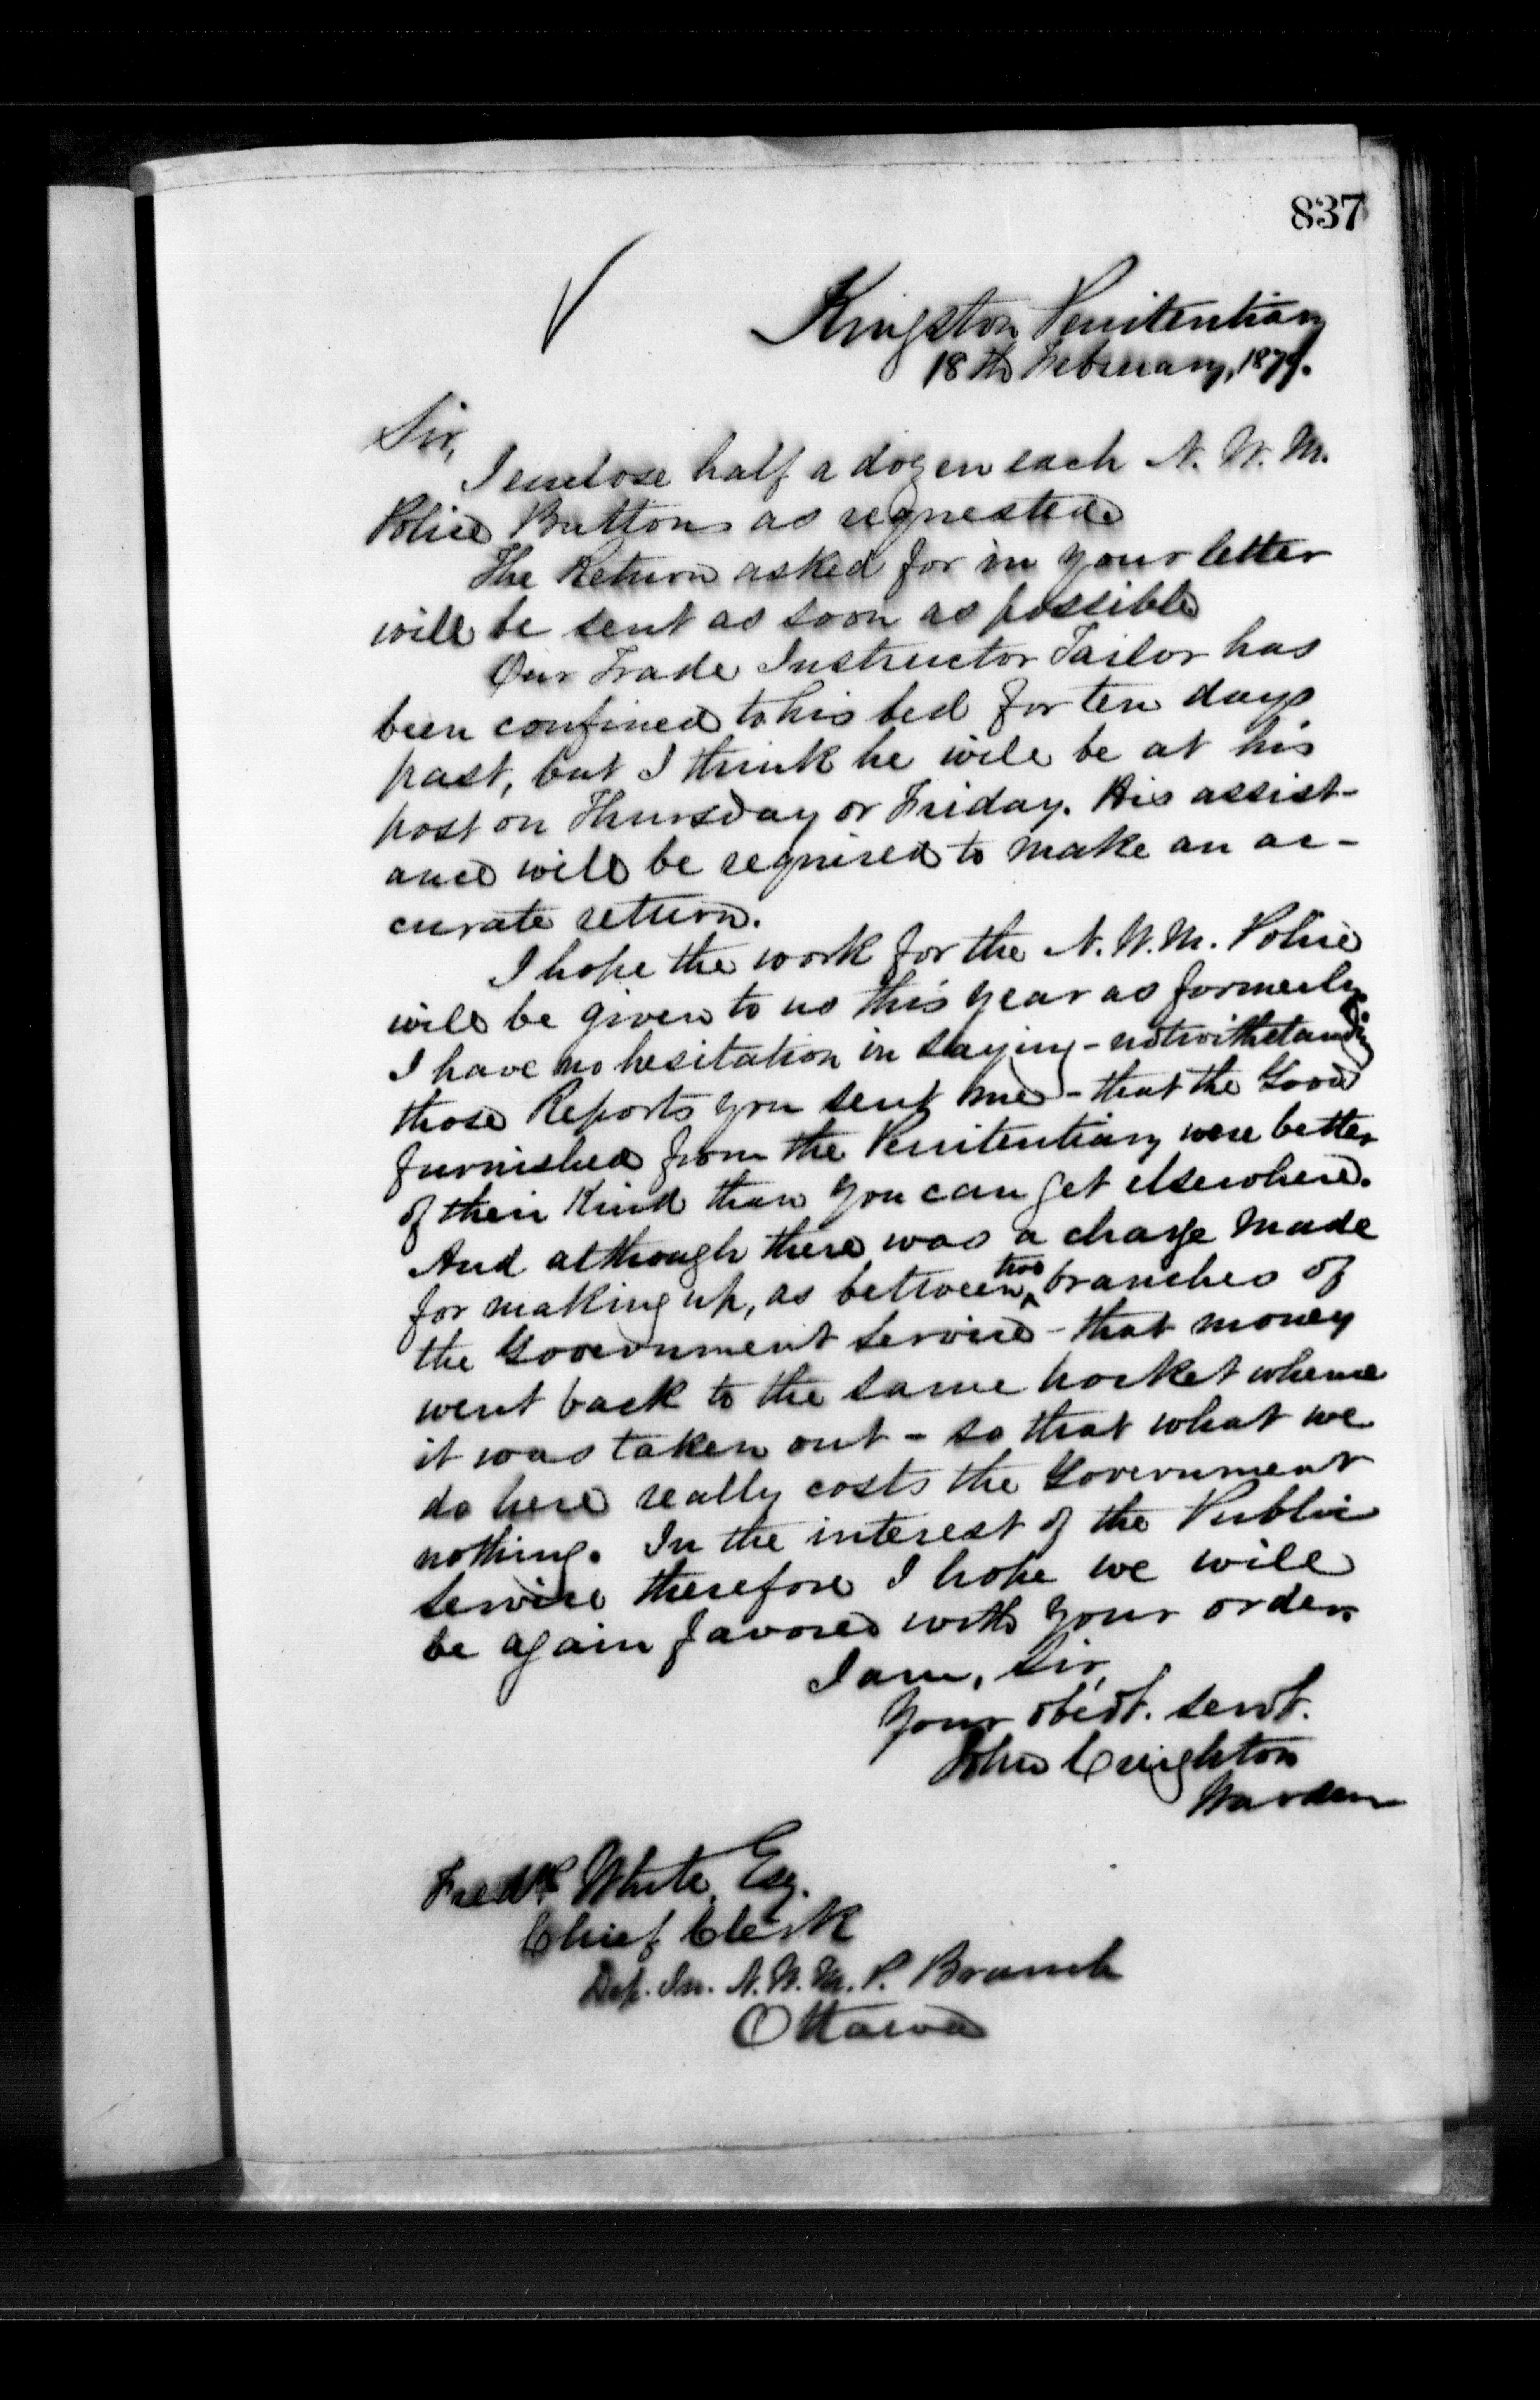 837
Kingston Penitentiary
18th February, 1879.
Sir,
I enclose half a dozen each N. W. M.
Police Buttons as requested
The Return asked for in your letter
will be sent as soon as possible
Our Trade Instructor Tailor has
been confined to his bed for ten days
past, but I think he will be at his
post on Thursday or Friday. His assist-
ance will be required to make an ac-
curate return.
I hope the work for the N. W. M. Police
will be given to us this year as formerly.
I have no hesitation in saying - notwithstanding
those Reports you sent me - that the Goods
furnished from the Penitentiary were better
of their Kind than you can get elsewhere.
And although there was a charge made
for making up, as between two branches of
the Government Service - that money
went back to the same pocket whence
it was taken out - so that what we
do here really costs the Government
nothing. In the interest of the Public
Service therefore I hope we will
be again favored with your orders
I am, Sir,
Your obedt. servt.
John Creighton
Warden
Fredk White, Esq.
Chief Clerk
Dep. In. N. W. M. P. Branch
Ottawa